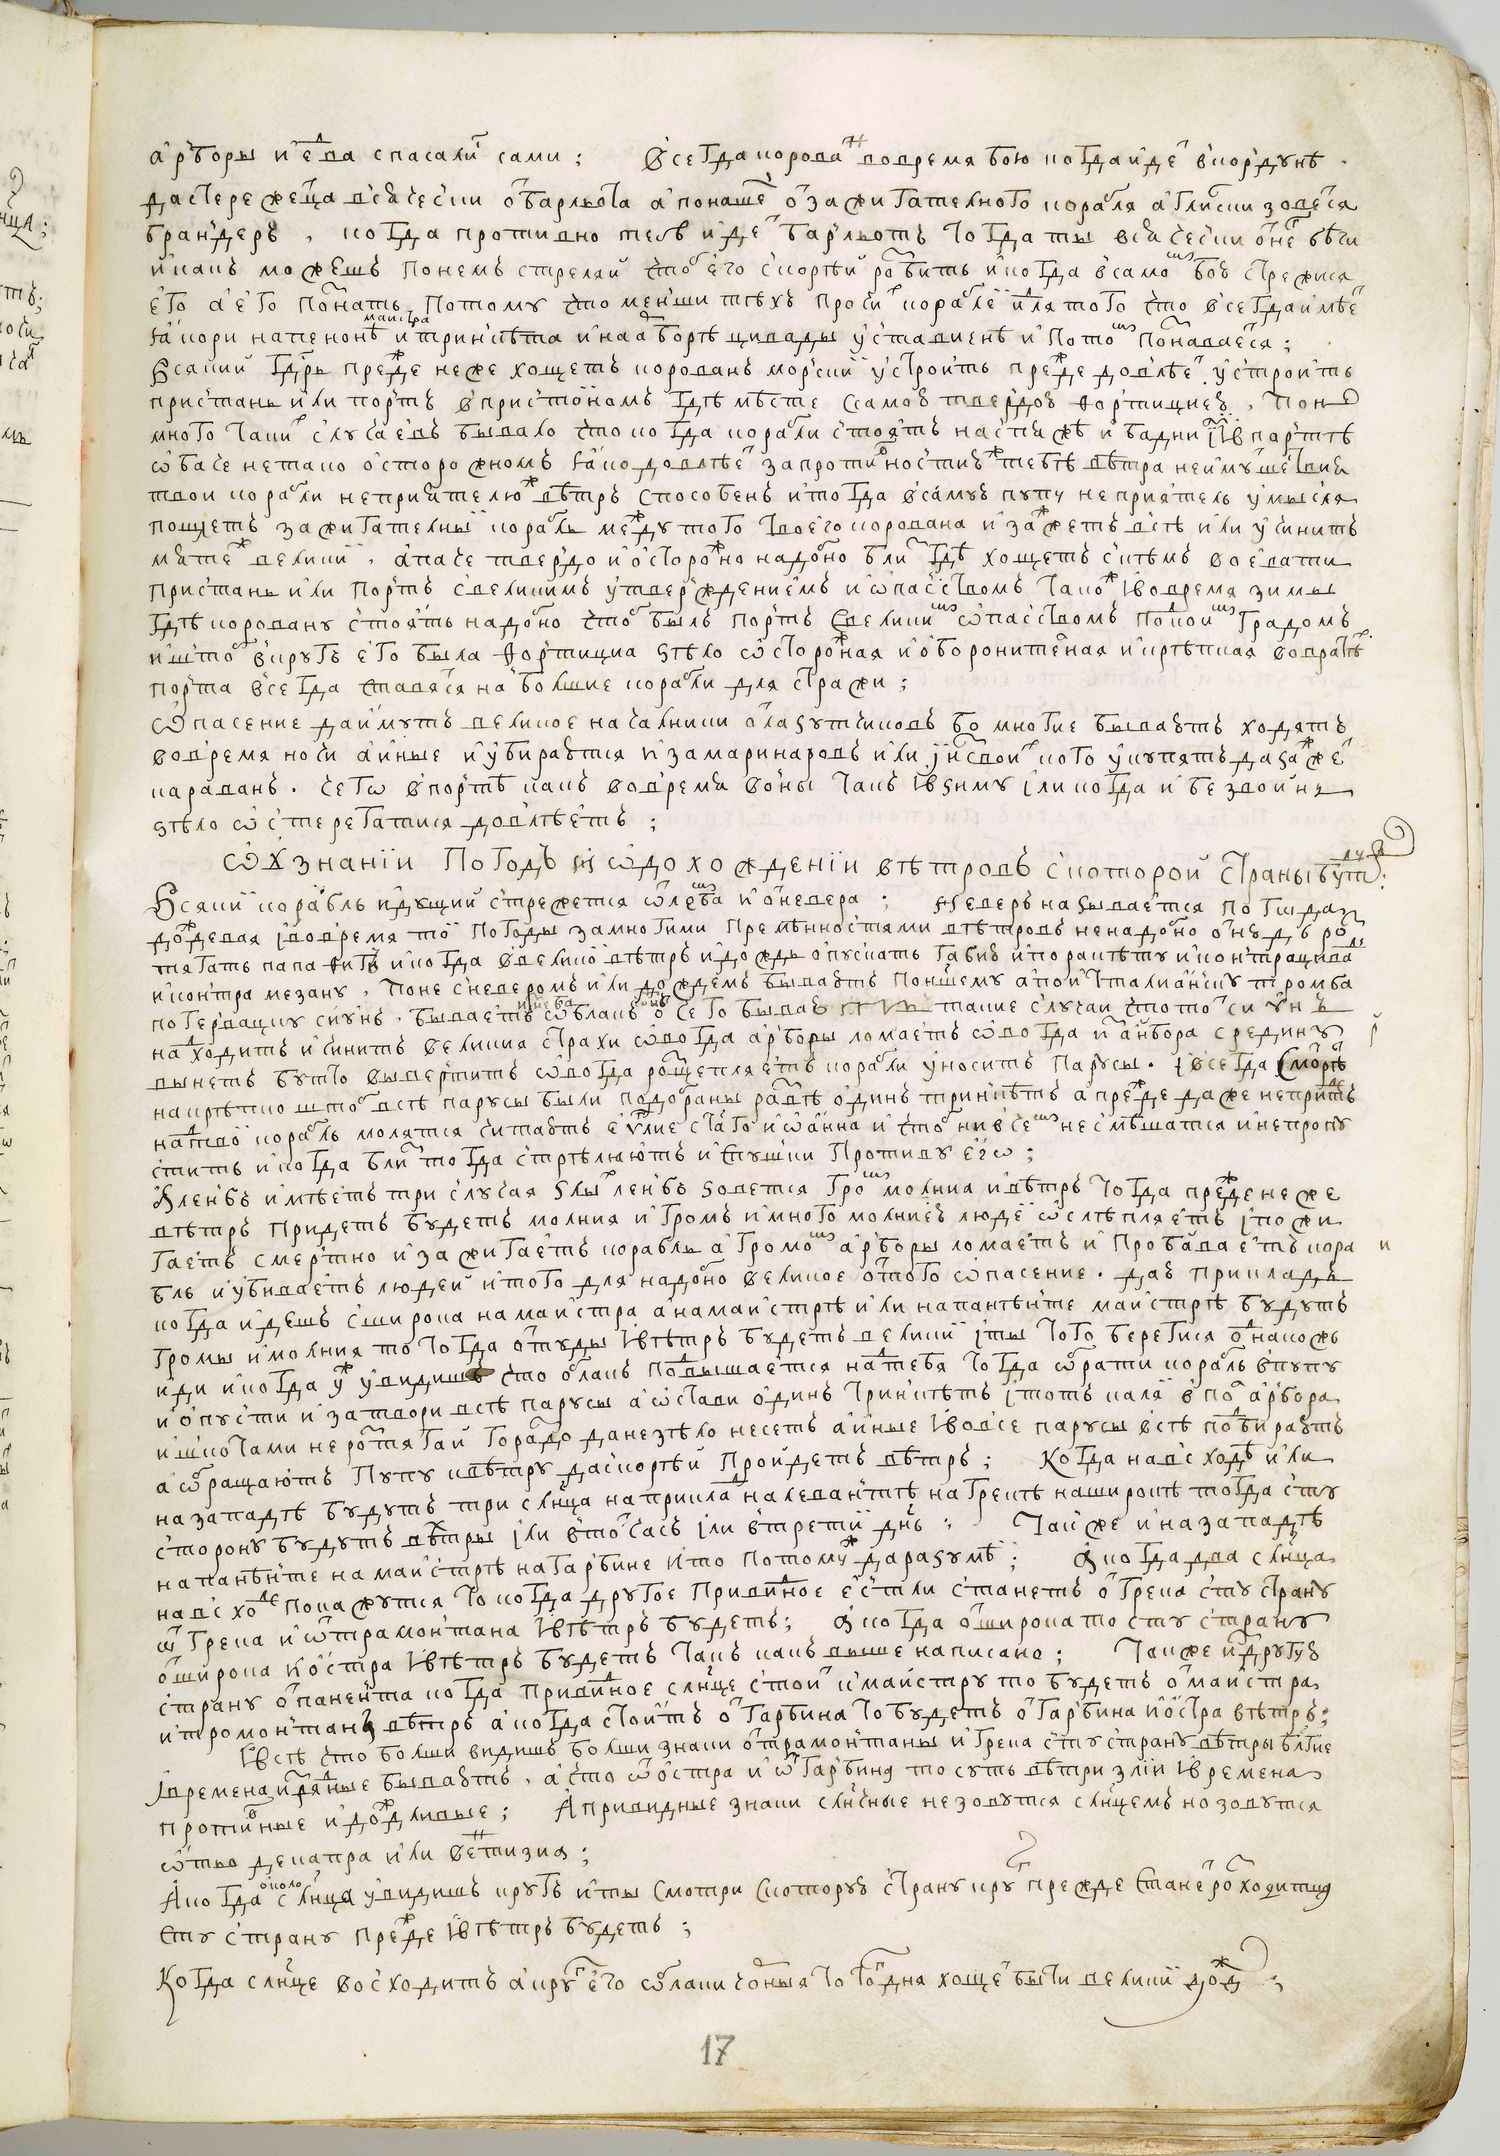 арборы и едва спасалис сами; всегда корован вовремя бою когда идет вкордунѣ
дастережеца всячески от барлюта а понашему от зажигателного корабля а глиски зовеся
брандеръ, когда противно тебѣ идет барлютъ тогда ты всячески от него бѣги
и какъ можешъ понемъ стреляй чтоб его скорѣй розбитъ и когда всамом бою стрежися
его а его познать потому что менши тѣхъ протчих кораблей и для того что всегда имѣет
якори напенонѣ маистра и тринкѣта и на арборѣ цивады уставленѣ и потом познаваеся;
Всякий гдрь прежде неже хощетъ корованъ морский устроить прежде довлѣет устроить
пристань или портъ впристойномъ гдѣ мѣсте самою твердою фортициею, поне
много таких случаевъ бывало что когда корабли стоятъ наспяжѣ и бадни и впартѣ
о басе нетако осторожномъ яко довлѣет запротивностию тебѣ вѣтра неимуществия
твои корабли неприятелю вѣтръ способенъ и тогда всамую пупу неприятель умысля
пощетъ зажигателный корабль между того твоего корована и зажжетъ всѣ или учинитъ
мятеж великий, апаче твердо и осторожно надобно близ гдѣ хощетъ скѣмъ воевати
пристань или портъ свеликимъ утверждениемъ и опасствомъ також и вовремя зимы
гдѣ коровану стоять надобно чтоб былъ портъ свеликим опасствомъ под коим градомъ
и штоб вкругъ его была фортициа зѣло осторожная и оборонителная и крѣпкая вовратѣх
порта всегда ставятся наболшие корабли для стражи;
Опасение даимутъ великое началники от лазутчиковъ бо многие бываютъ ходятъ
вовремя ночи аиные и убираются изамаринаровъ или и изсвоих кого укупятъ да зажжет
караванъ. чего впортѣ какъ вовремя воины такъ и взиму или когда и безвойны
зѣло остерегатися довлѣетъ;
О познании погодъ и о дохождении вѣтровъ скоторой страны будут:
Всякий корабль идущий стрежется от лемба и от невера; Неверъ называется погода
дождевая и вовремя той погоды замногими премѣнностями вѣтровъ ненадобно отнюдъ роз
тягать папафигъ и когдаввелико вѣтръ и дождь опускать габию и поракѣту и контрацивад
и контра мезану, поне сневеромъ или дождемъ бываютъ понѣшему апоиталианску тромба
потервацку сиунъ. бываетъ и неба облакъ от чего бываютъ такие случаи что тот сиунъ
находитъ и чинитъ великия страхи овогда арборы ломаетъ овогда и арбора средину
вынетъ бутто вывертитъ овогда розщепляетъ корабли уноситъ парусы. и всегда смотрѣть
накрѣпко штоб всѣ парусы были подобраны развѣ одинъ тринкѣтъ апрежде даже непридетъ
натвой корабль молятся читаютъ евглие стаго иоанна и чтоб ниввчем несмѣшатся и непропу
стить и когда близ тогда стрѣляютъ из пушки противу его;
А ленбъ имѣетъ три случая злых ленбъ зовется гром молниа и вѣтръ тогда прежде неже
вѣтръ придетъ будетъ молния и громъ и много молниею людей ослѣпляетъ и пожи
гаетъ смертно и зажигаетъ корабль а громом арборы ломаетъ и пробиваетъ кора
бль и убиваетъ людей и того для надобно великое оттого опасение. даю прикладъ
когда идешъ сширока на маистра анамаистрѣ или на панѣнте маистрѣ будутъ
громы и молния то тогда оттуды и вѣтръ будетъ великий и ты того берегися однакожъ
иди и когда уж увидишъ что облакъ подвышается натебя тогда обрати корабль впупу
и опусти и затвори всѣ парусы а остави одинъ тринкѣтъ и тотъ каляй впол арбора
ишкотами нерозтягай гораздо данезѣло несетъ аиные и вовсе парусы всѣ подбираютъ
аобращаютъ пупу квѣтру даскорѣй пройдетъ вѣтръ; Когда навсходѣ или
на западѣ будутъ три слнца наприклад налевантѣ нагрекѣ наширокѣ тогда сту
сторону будутъ вѣтры или втот часъ или втретий днь: Такжe и на западѣ
на панѣнте на маистрѣ на гарбине и то потомуж даразумѣй; А когда два слнца
навсходе покажутся то когда другое привидное естли станетъ от грека сту страну
от грека и от трамонтана и вѣтръ будетъ; А когда от широка то сту страну
от широка и остра и вѣтръ будетъ такъ какъ выше написано; Также и другую
страну от панента когда привидное слнце стоит к маистру то будетъ от маистра
и тромонтана вѣтръ а когда стоитъ от гарбина то будетъ от гарбина и остра вѣтръ;
И всѣ что болши видишъ болши знаки от трамонтаны и грека сту страну вѣтры блгие
и времена изрядные бываютъ, а что от остра и от гарбина то суть вѣтри злии и времена
противные и дождливые; А привидные знаки слнчные незовутся слнцемъ но зовутся
отъо декапра или ветизиа;
А когда около слнца увидишъ кругъ и ты смотри скоторую страну круг прежде станет розходитца
сту страну прежде и вѣтръ будетъ;
Когда слнце восходитъ а круг его облаки чорныя то тогодня хощет быти великий дождь;
17